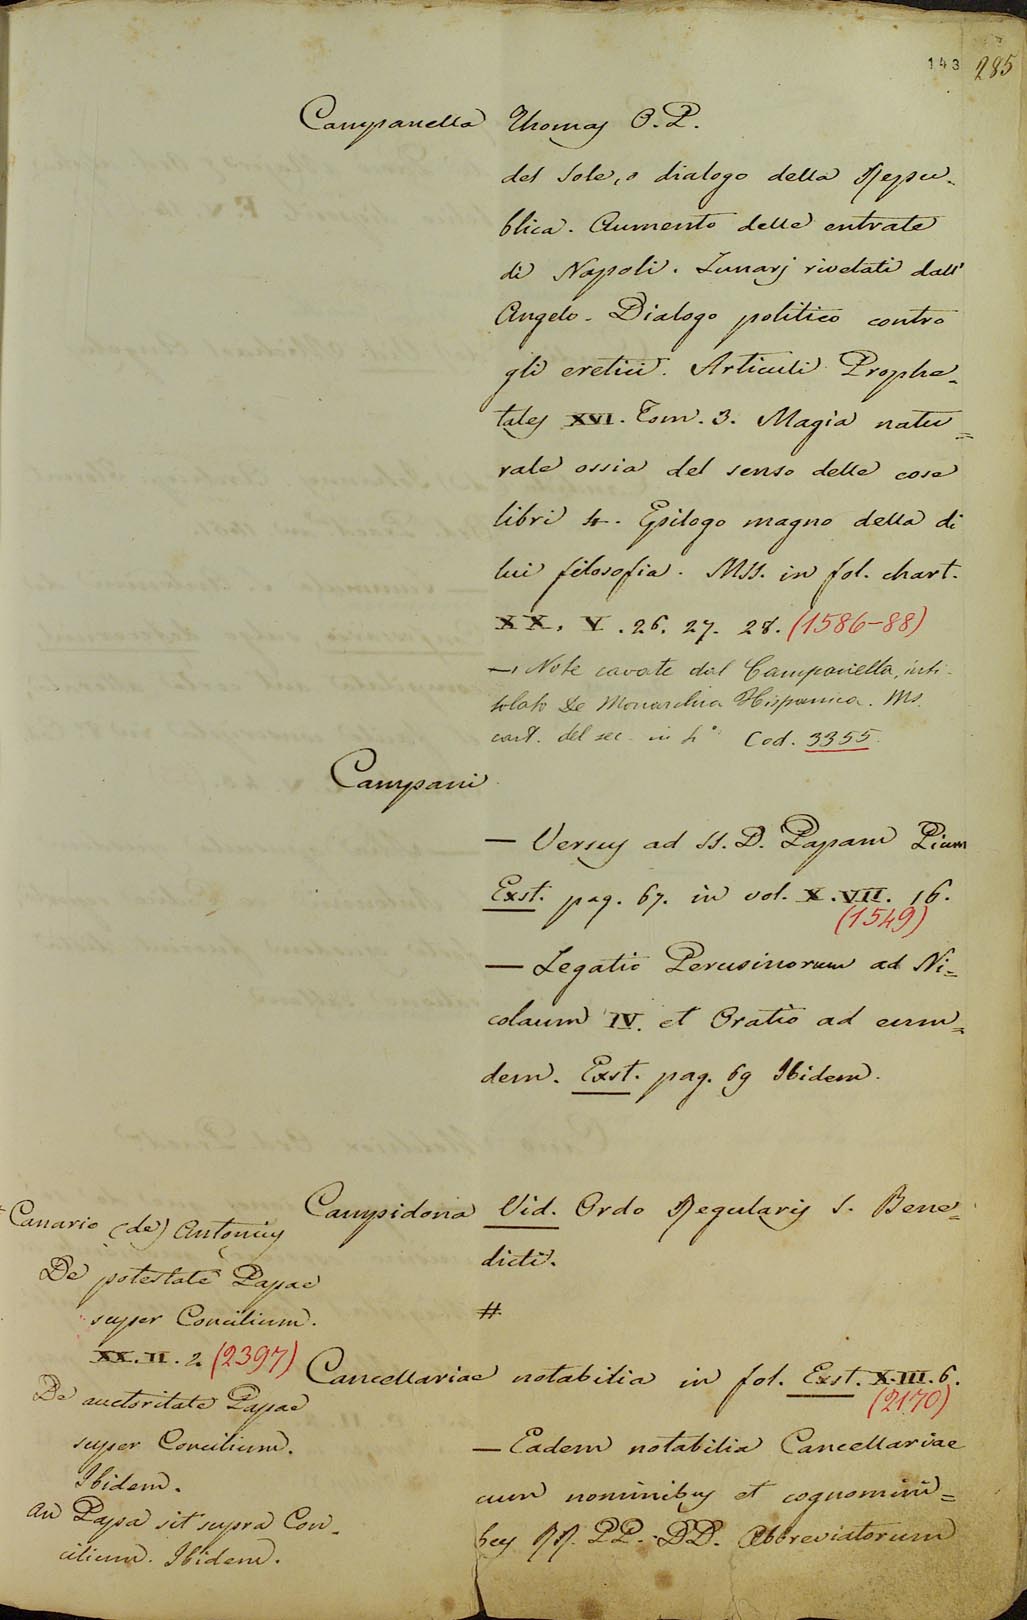 143 285
Campanella Thomas O. P.
del Sole, o dialogo della Repu-
blica. Aumento delle entrate
di Napoli. Lunarj rivelati dall'
Angelo. Dialogo politico contro
gli eretici. Articuli Prophe-
tales XVI. Tom. 3. Magia natu=
rale ossia del senso delle cose
libri 4. Epilogo magno della di
lui filosofia. MSS. in fol. chart.
XX. V. 26. 27. 28. (1586-88)
— Note cavate dal Campanella, inti-
tolato De Monarchia Hispanica. Ms.
cart. del sec. in 4° Cod. 3355.
Campani
— Versus ad SS. D. Papam Pium
Exst. pag. 67. in vol. X. VII. 16.
(1549)
— Legatio Perusinorum ad Ni=
colaum IV. et Oratio ad eum=
dem. Exst. pag. 69 Ibidem.
Campidona Vid. Ordo Regularis S. Bene=
dicti.
#
Cancellariae notabilia in fol. Exst. X. III. 6.
(2170)
— Eadem notabilia Cancellariae
cum nominibus et cognomini=
bus RR. PP. DD. Abbreviatorum
Canario (de) Antonius
De potestate Papae
super Concilium.
XX. II. 2. (2397)
De auctoritate Papae
super Concilium.
Ibidem.
An Papa sit supra Con-
cilium. Ibidem.